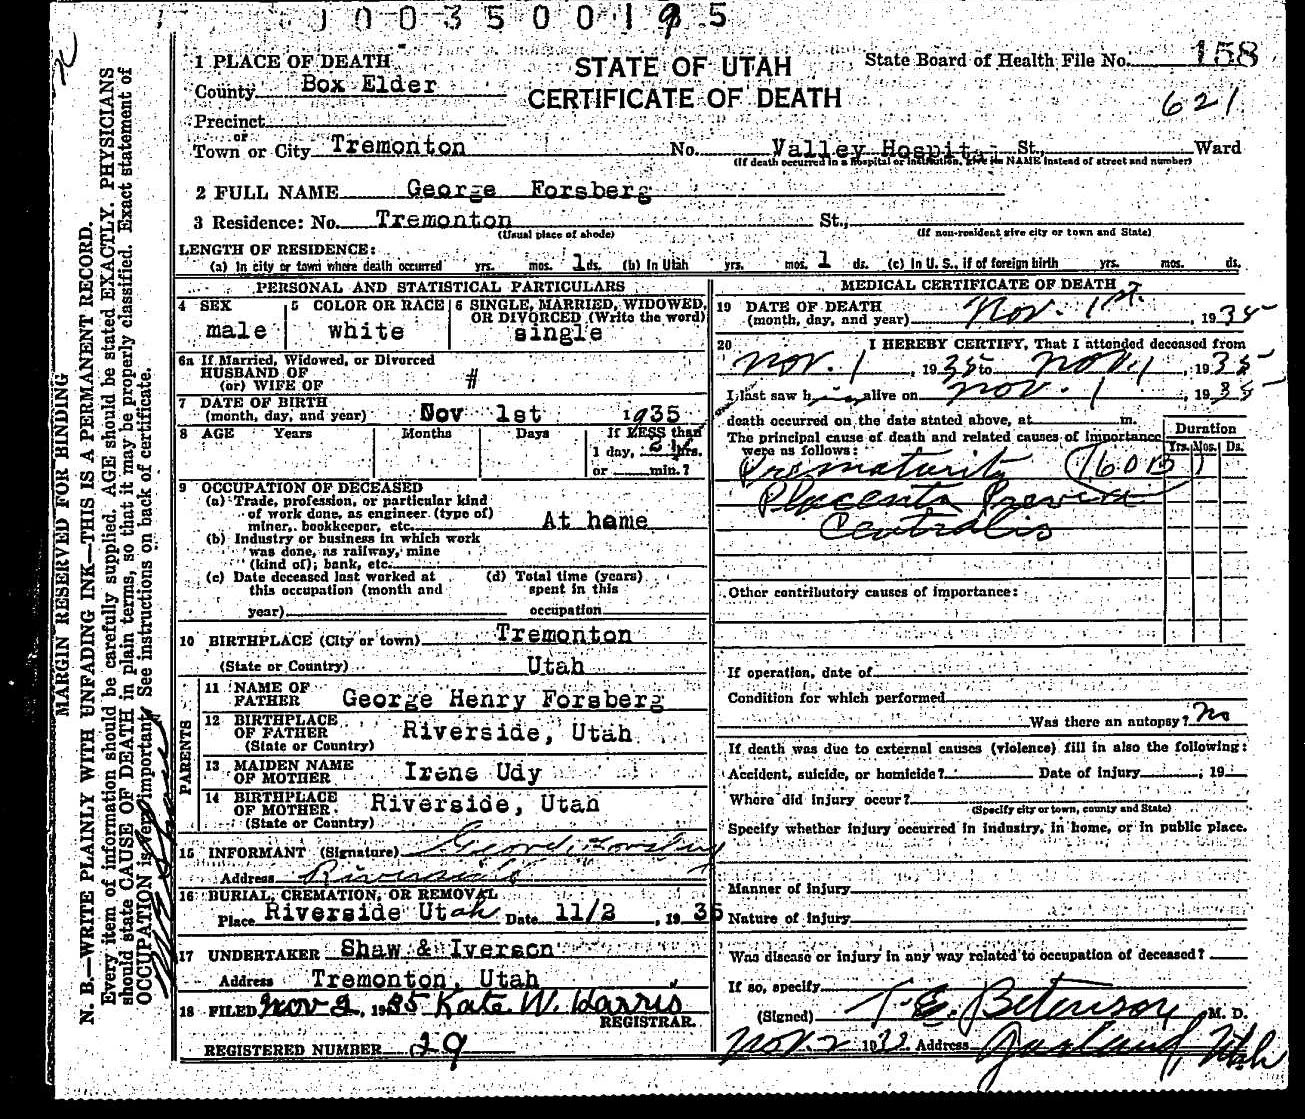 1003500195
1 PLACE OF DEATH
STATE OF UTAH
State Board of Health File No. 158
County Box Elder
CERTIFICATE OF DEATH
621
Precinct
or
Town or City Tremonton No. Valley Hospital St., Ward
(If death occurred in a hospital or institution, give its NAME instead of street and number)
2 FULL NAME George Forsberg
3 Residence: No. Tremonton St.,
(Usual place of abode) (If non-resident give city or town and State)
LENGTH OF RESIDENCE:
(a) In city or town where death occurred yrs. mos. 1 ds. (b) In Utah yrs. mos. 1 ds. (c) In U. S., if of foreign birth yrs. mos. ds.
PERSONAL AND STATISTICAL PARTICULARS
4 SEX
male
5 COLOR OR RACE
white
6 SINGLE, MARRIED, WIDOWED,
OR DIVORCED (Write the word)
single
6a If Married, Widowed, or Divorced
HUSBAND OF
(or) WIFE OF #
7 DATE OF BIRTH
(month, day, and year) Nov 1st 1935
8 AGE Years Months Days If LESS than
1 day, hrs.
or min.?
9 OCCUPATION OF DECEASED
(a) Trade, profession, or particular kind
of work done, as engineer (type of)
miner, bookkeeper, etc. At home
(b) Industry or business in which work
was done, as railway, mine
(kind of); bank, etc.
(c) Date deceased last worked at
this occupation (month and
year)
(d) Total time (years)
spent in this
occupation
10 BIRTHPLACE (City or town) Tremonton
(State or Country) Utah
PARENTS
11 NAME OF
FATHER George Henry Forsberg
12 BIRTHPLACE
OF FATHER Riverside, Utah
(State or Country)
13 MAIDEN NAME
OF MOTHER Irene Udy
14 BIRTHPLACE
OF MOTHER Riverside, Utah
(State or Country)
15 INFORMANT (Signature) George Forsberg
Address Riverside
16 BURIAL, CREMATION, OR REMOVAL
Place Riverside Utah Date 11/2, 1935
17 UNDERTAKER Shaw & Iverson
Address Tremonton, Utah
18 FILED Nov 2, 1935 Kate W. Harris
REGISTRAR.
REGISTERED NUMBER 29
MEDICAL CERTIFICATE OF DEATH
19 DATE OF DEATH
(month, day, and year) Nov. 1st., 1935
20 I HEREBY CERTIFY, That I attended deceased from
Nov. 1, 1935 to Nov. 1, 1935
I last saw him alive on Nov. 1, 1935
death occurred on the date stated above, at m.
The principal cause of death and related causes of importance
were as follows:
Duration
Yrs. Mos. Ds.
Prematurity (160B)
Placenta Previa
Centralis
Other contributory causes of importance:
If operation, date of
Condition for which performed
Was there an autopsy? No
If death was due to external causes (violence) fill in also the following:
Accident, suicide, or homicide? Date of injury, 19
Where did injury occur?
(Specify city or town, county and State)
Specify whether injury occurred in industry, in home, or in public place.
Manner of injury
Nature of injury
Was disease or injury in any way related to occupation of deceased?
If so, specify
(Signed) M. D.
Nov 2 19 Address Garland, Utah
MARGIN RESERVED FOR BINDING
N. B.—WRITE PLAINLY WITH UNFADING INK—THIS IS A PERMANENT RECORD.
Every item of information should be carefully supplied. AGE should be stated EXACTLY. PHYSICIANS
should state CAUSE OF DEATH in plain terms, so that it may be properly classified. Exact statement of
OCCUPATION is very important. See instructions on back of certificate.